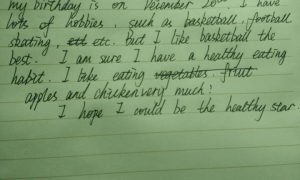 my birthday is on December 20th. I have
lots of hobbies, such as basketball, football,
skating, etc. But I like basketball the
best. I am sure I have a healthy eating
habit. I like eating vegetables. fruit
apples and chicken very much!
I hope I could be the healthy star.